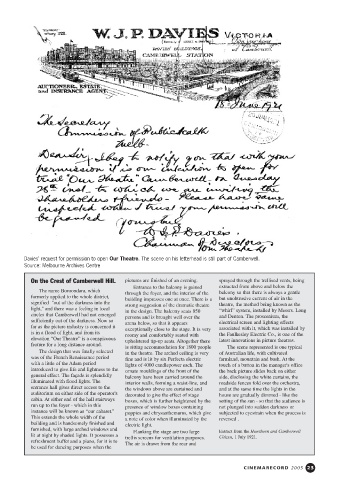 W. J. P. DAVIES
VICTORIA
DAVIES' BUILDINGS,
CAMBERWELL STATION
AUCTIONEER, ESTATE
and INSURANCE AGENT
18 June 1921
The Secretary
Commission of Public Health
Melb.
Dear Sir, I beg to notify you that with your
permission it is our intention to open for
trial "Our Theatre" Camberwell on Tuesday
28th inst to which we are inviting the
shareholders & friends - Please have same
inspected when I trust your permission will
be granted
Yours truly
W J P Davies
Chairman of Directors
Davies' request for permission to open Our Theatre. The scene on his letterhead is old part of Camberwell.
Source: Melbourne Archives Centre
On the Crest of Camberwell Hill.
The name Boroondara, which
formerly applied to the whole district,
signified "out of the darkness into the
light," and there was a feeling in local
circles that Camberwell had not emerged
sufficiently out of the darkness. Now as
far as the picture industry is concerned it
is in a flood of light, and from its
elevation "Our Theatre" is a conspicuous
feature for a long distance around.
The design that was finally selected
was of the French Renaissance period
with a little of the Adam period
introduced to give life and lightness to the
general effect. The façade is splendidly
illuminated with flood lights. The
entrance hall gives direct access to the
auditorium on either side of the operator's
cabin. At either end of the hall stairways
run up to the foyer - which in this
instance will be known as "our cabaret."
This extends the whole width of the
building and is handsomely finished and
furnished, with large arched windows and
lit at night by shaded lights. It possesses a
refreshment buffet and a piano, for it is to
be used for dancing purposes when the
pictures are finished of an evening.
Entrance to the balcony is gained
through the foyer, and the interior of the
building impresses one at once. There is a
strong suggestion of the dramatic theatre
in the design. The balcony seats 850
persons and is brought well over the
stalls below, so that it appears
exceptionally close to the stage. It is very
roomy and comfortably seated with
upholstered tip-up seats. Altogether there
is sitting accommodation for 1800 people
in the theatre. The arched ceiling is very
fine and is lit by six Perfecto electric
lights of 4000 candlepower each. The
ornate mouldings of the front of the
balcony have been carried around the
interior walls, forming a waist-line, and
the windows above are curtained and
decorated to give the effect of stage
boxes, which is further heightened by the
presence of window boxes containing
poppies and chrysanthemums, which give
a note of color when illuminated by the
electric light.
Flanking the stage are two large
trellis screens for ventilation purposes.
The air is drawn from the rear and
sprayed through the trellised vents, being
extracted from above and below the
balcony so that there is always a gentle
but unobtrusive current of air in the
theatre, the method being known as the
system, installed by Messrs. Lang
and Denton. The proscenium, the
electrical screen and lighting effects
associated with it, which was installed by
the Ferlinsley Electric Co., is one of the
latest innovations in picture theatres.
The scene represented is one typical
of Australian life, with cultivated
farmland, mountain and bush. At the
touch of a button in the manager's office
the back picture slides back on either
side, disclosing the white curtains, the
roadside fences fold over the orchestra,
and at the same time the lights in the
house are gradually dimmed - like the
setting of the sun - so that the audience is
not plunged into sudden darkness or
subjected to eyestrain when the process is
reversed.
Extract from the Hawthorn and Camberwell
Citizen, 1 July 1921.
CINEMARECORD 2005 25